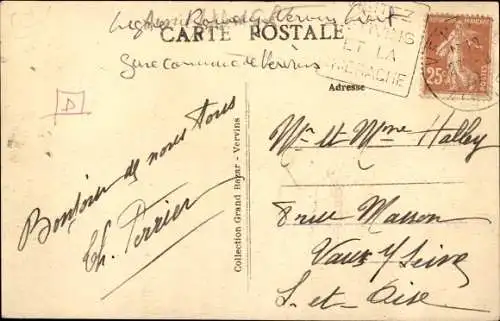 CARTE POSTALE
Gare commune de Vervins
VERVINS
ET LA
THIERACHE
25c
Adresse
D
Bonjour de nous tous
Th. Perrier
Collection Grand Bazar - Vervins
Mr et Mme Halley
8 rue Masson
Vaux s/ Seine
S. et Oise